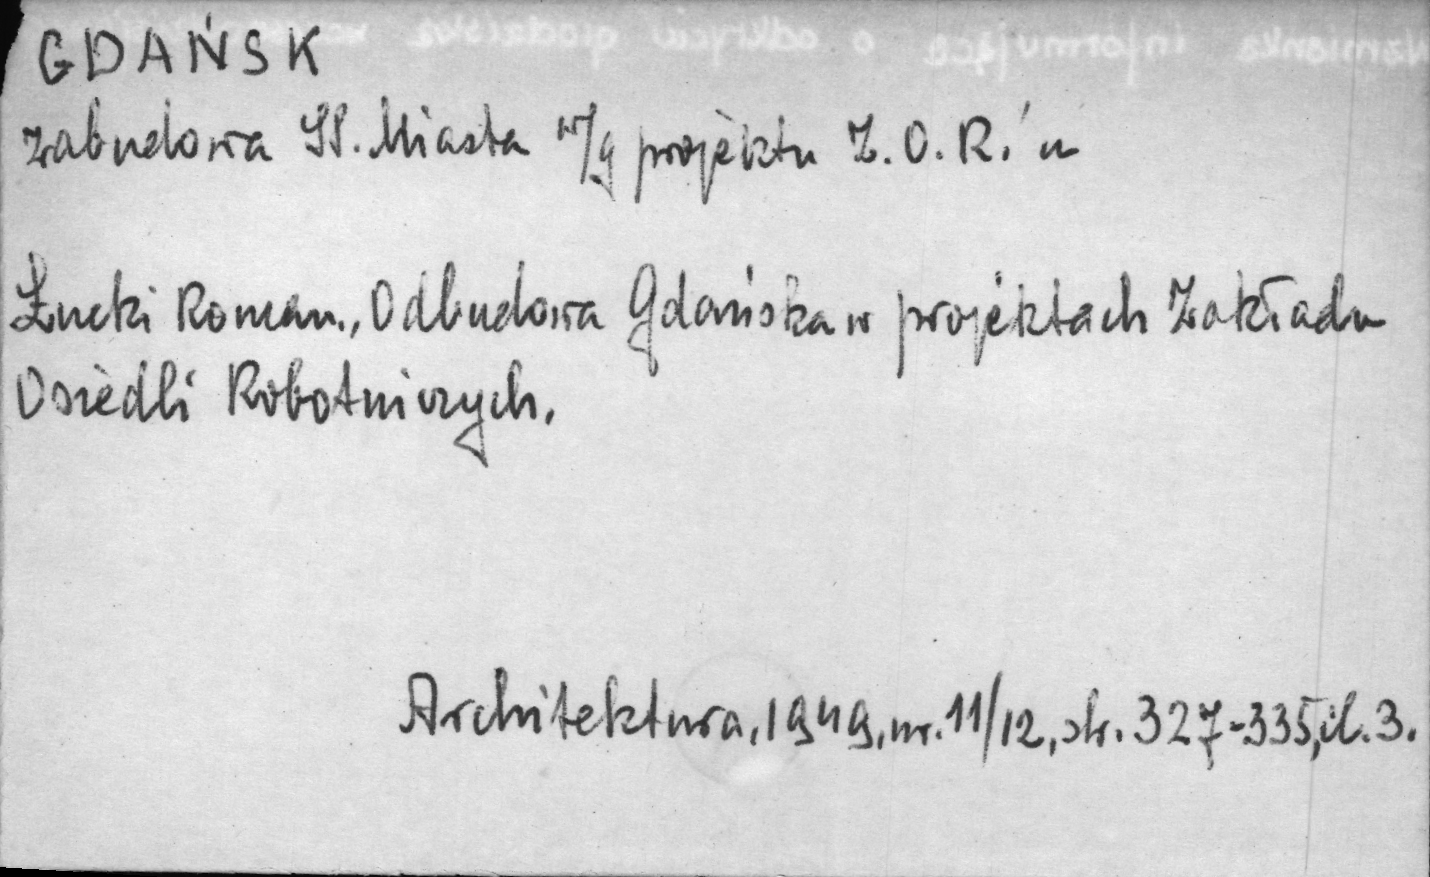 GDAŃSK
zabudowa St. Miasta w/g projektu Z.O.R.'u
Łucki Roman., Odbudowa Gdańska w projektach Zakładu
Osiedli Robotniczych.
Architektura, 1949, nr. 11/12, str. 327-335, il. 3.